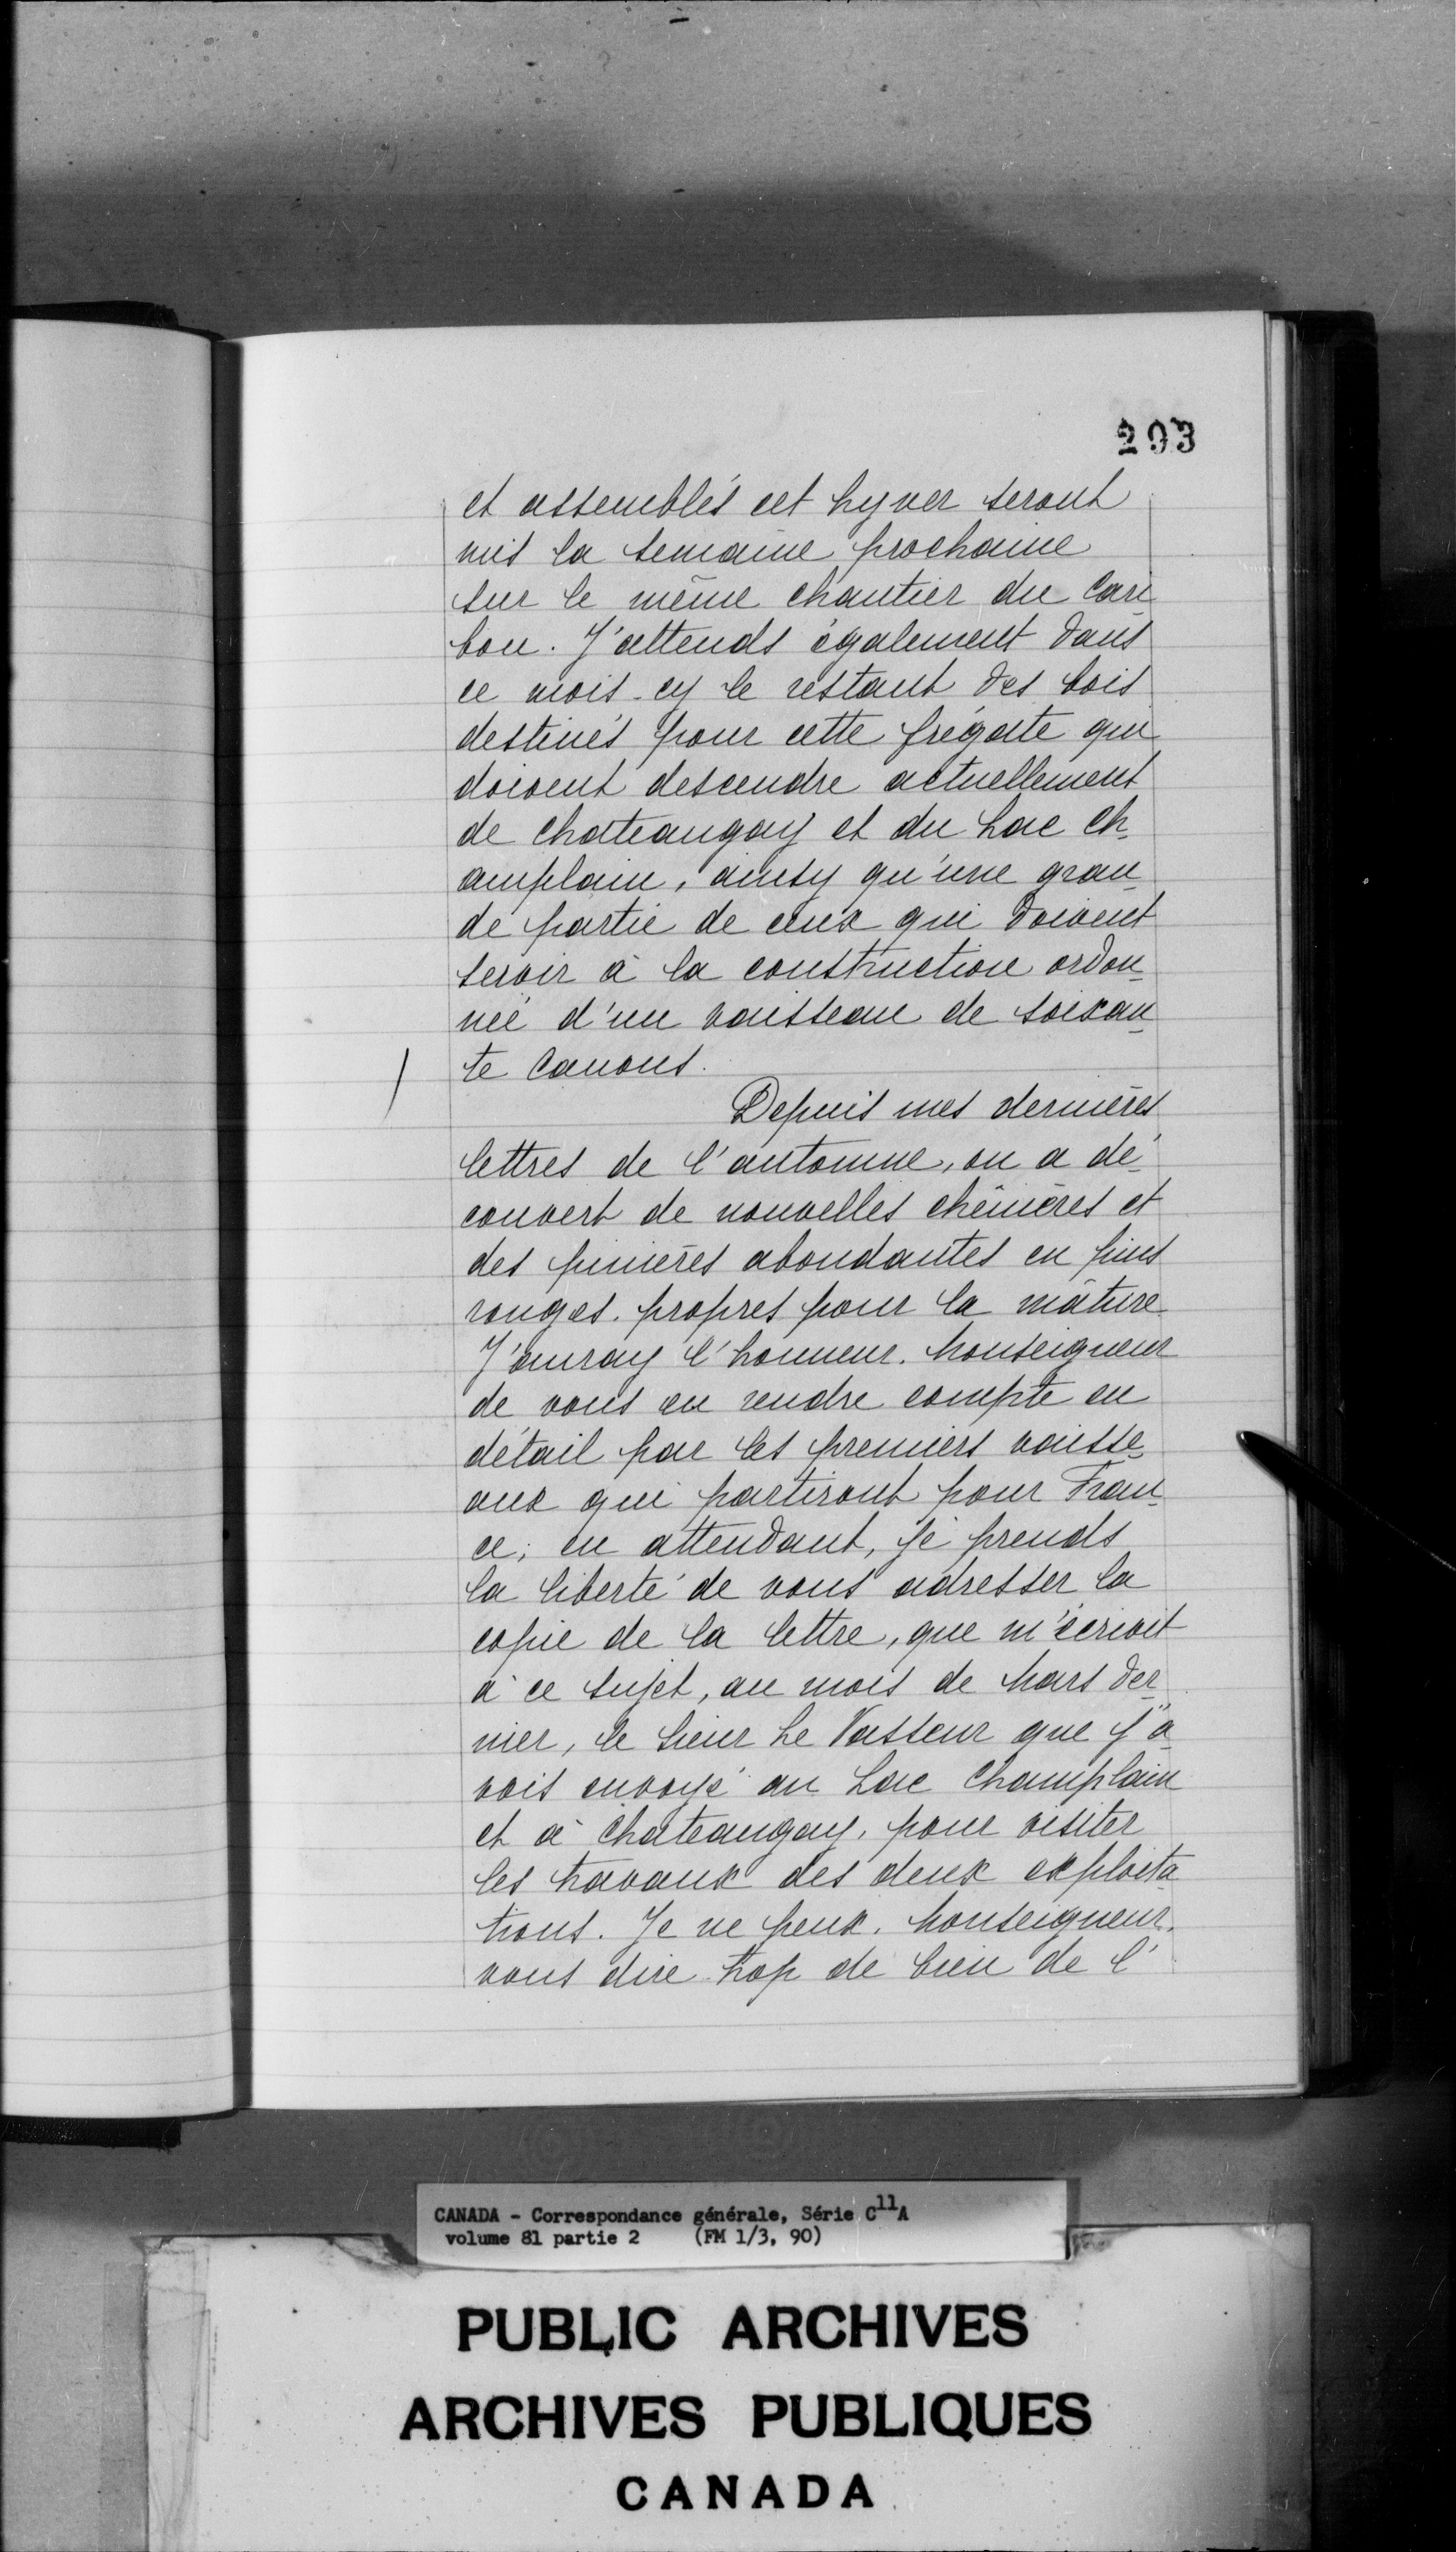 293
et assemblés cet hyver seront
mis la semaine prochaine
sur le même chantier du Cari
bou. J'attends également dans
ce mois-cy le restant des bois
destinés pour cette frégate qui
doivent descendre actuellement
de Chateaugay et du Lac Ch-
amplain, ainsy qu'une gran-
de partie de ceux qui doivent
servir à la construction ordon-
née d'un vaisseau de soixan-
te Canons.
Depuis mes dernières
lettres de l'automne, on a dé-
couvert de nouvelles chênières et
des pinières abondantes en pins
rouges propres pour la mâture
J'auray l'honneur, Monseigneur
de vous en rendre compte en
détail par les premiers vaisse-
aux qui partiront pour Fran-
ce; en attendant, je prends
la liberté de vous adresser la
copie de la lettre, que m'écrivit
à ce sujet, au mois de Mars der-
nier, le Sieur Le Vasseur que j'a-
vois envoyé au Lac Champlain
et à Chateaugay, pour visiter
les travaux des deux exploita-
tions. Je ne peux, Monseigneur,
vous dire trop de bien de l'
CANADA - Correspondance générale, Série C11A
volume 81 partie 2 (FM 1/3, 90)
PUBLIC ARCHIVES
ARCHIVES PUBLIQUES
CANADA